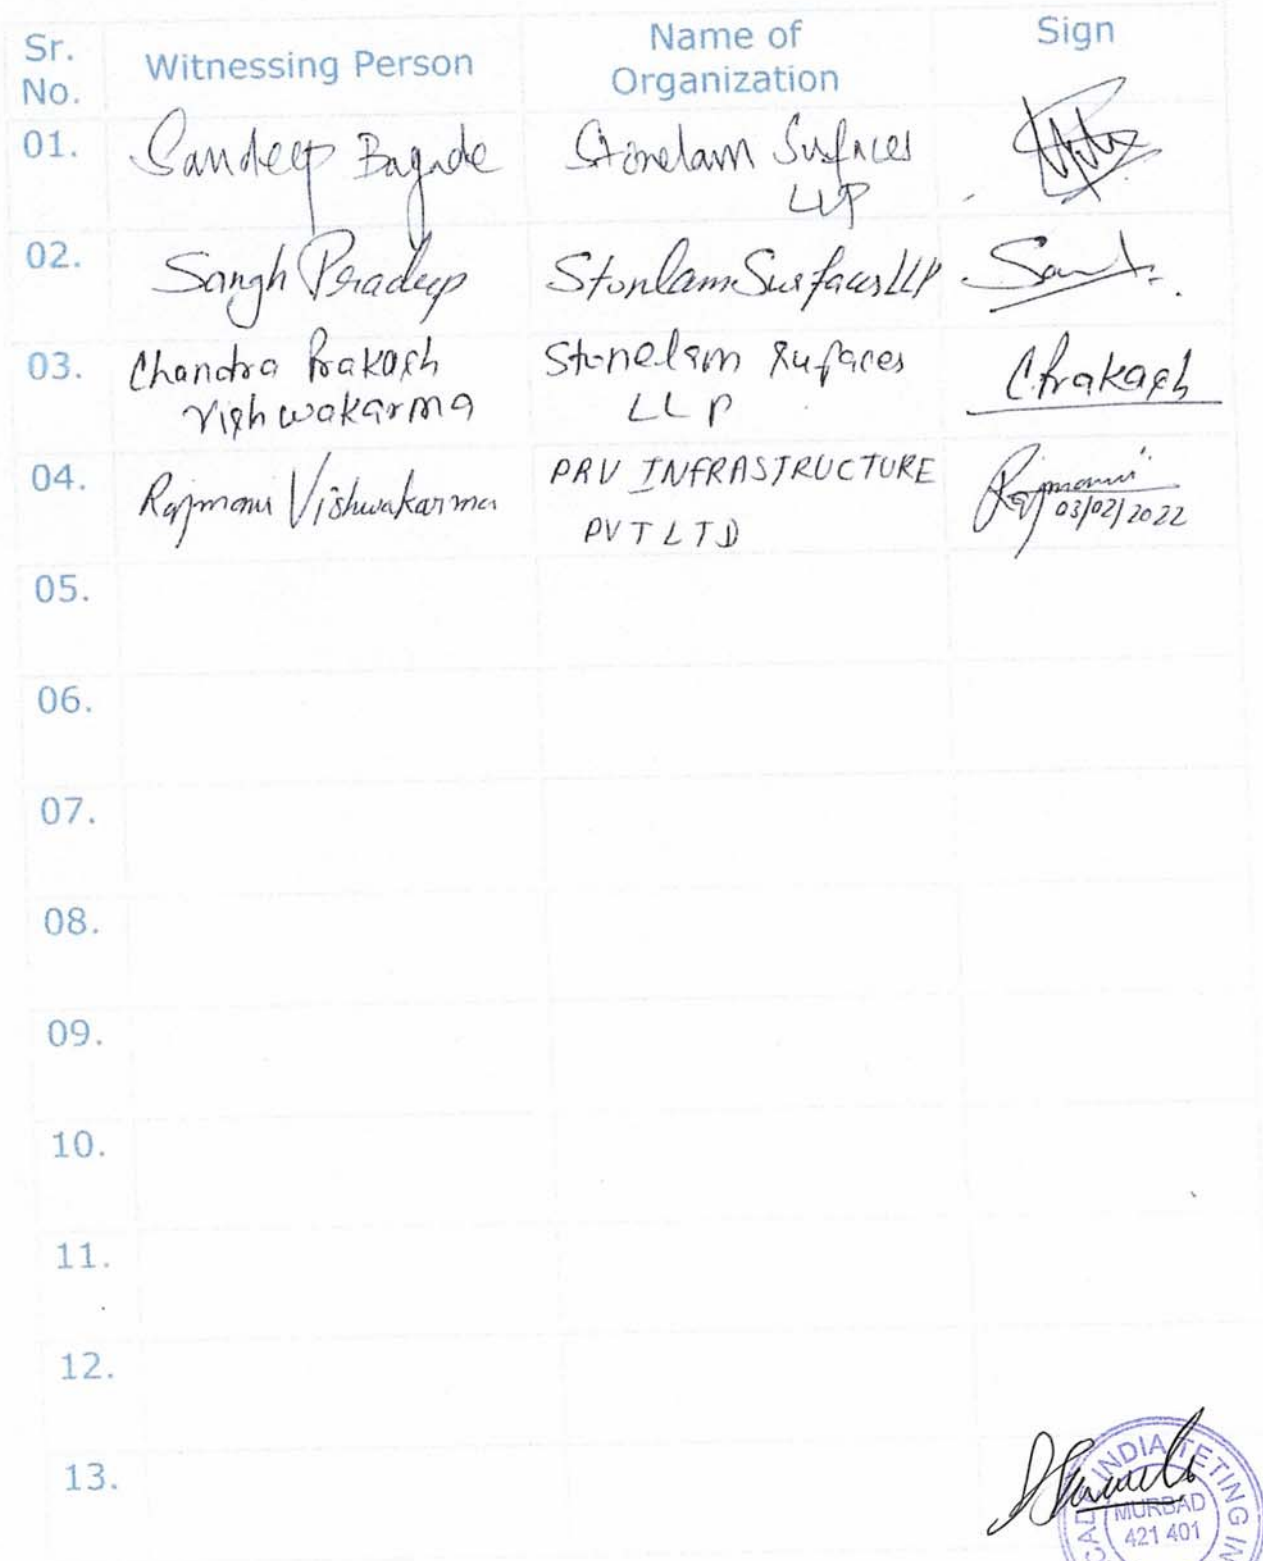 Sr. No.
Witnessing Person
Name of Organization
Sign
01.
Sandeep Bagade
Stonelam Sufaces
LLP
02.
Sangh Pradeep
Stonlam Surfaces LLP
03.
Chandra Prakash
Vishwakarma
Stonelam Sufaces
LLP
C.Prakash
04.
Rajmani Vishwakarma
PRV INFRASTRUCTURE
PVT LTD
Rajmani
03/02/2022
05.
06.
07.
08.
09.
10.
11.
12.
13.
INDIA TETING
MURBAD
421 401